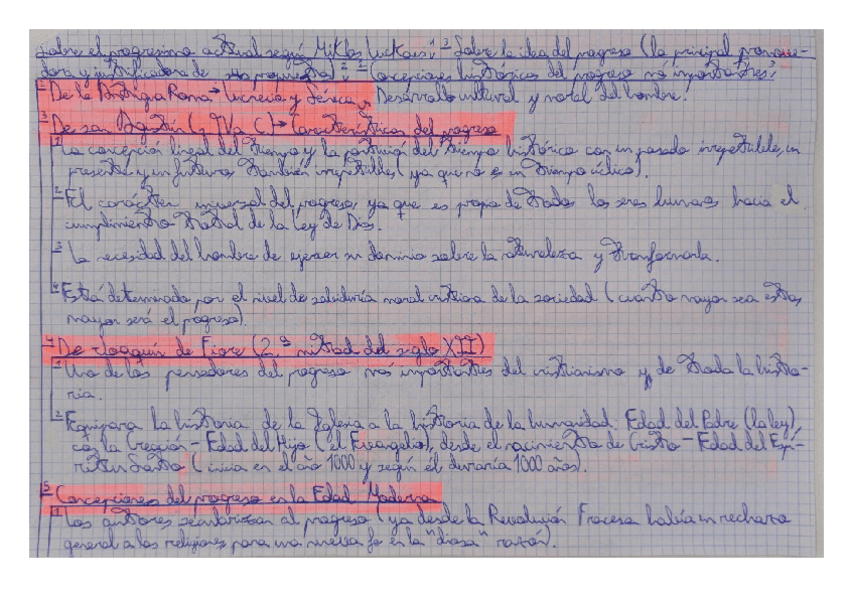 Sobre el progresismo actual según Miklos Lukacs: ³- Sobre la idea del progreso (la principal promove-
dora y justificadora de propuestas): ²- Concepciones históricas del progreso más importantes:
²- De la Antigua Roma → Lucrecio y Séneca → Desarrollo cultural y moral del hombre.
³- De san Agustín (s. IV a. C.) → Características del progreso
1- La concepción lineal del tiempo y la del tiempo histórico con un pasado irrepetible, un
presente y un futuro también irrepetibles (ya que no es un tiempo cíclico).
2- El carácter universal del progreso, ya que es propio de todos los seres humanos hacia el
cumplimiento total de la Ley de Dios.
3- La necesidad del hombre de ejercer su dominio sobre la naturaleza y transformarla.
4- Está determinado por el nivel de sabiduría moral cristiana de la sociedad (cuánto mayor sea esta,
mayor será el progreso).
4- De Joaquín de Fiore (2.ª mitad del siglo XII)
1- Uno de los pensadores del progreso más importantes del cristianismo y de toda la histo-
ria.
2- Equipara la historia de la Iglesia a la historia de la humanidad: Edad del Padre (la ley),
con la Creación - Edad del Hijo (el Evangelio), desde el nacimiento de Cristo - Edad del Espí-
ritu Santo (inicia en el año 1000 y según él duraría 1000 años).
5- Concepciones del progreso en la Edad Moderna
1- Los autores secularizan al progreso (ya desde la Revolución Francesa había un rechazo
general a las religiones para una nueva fe en la "diosa" razón).